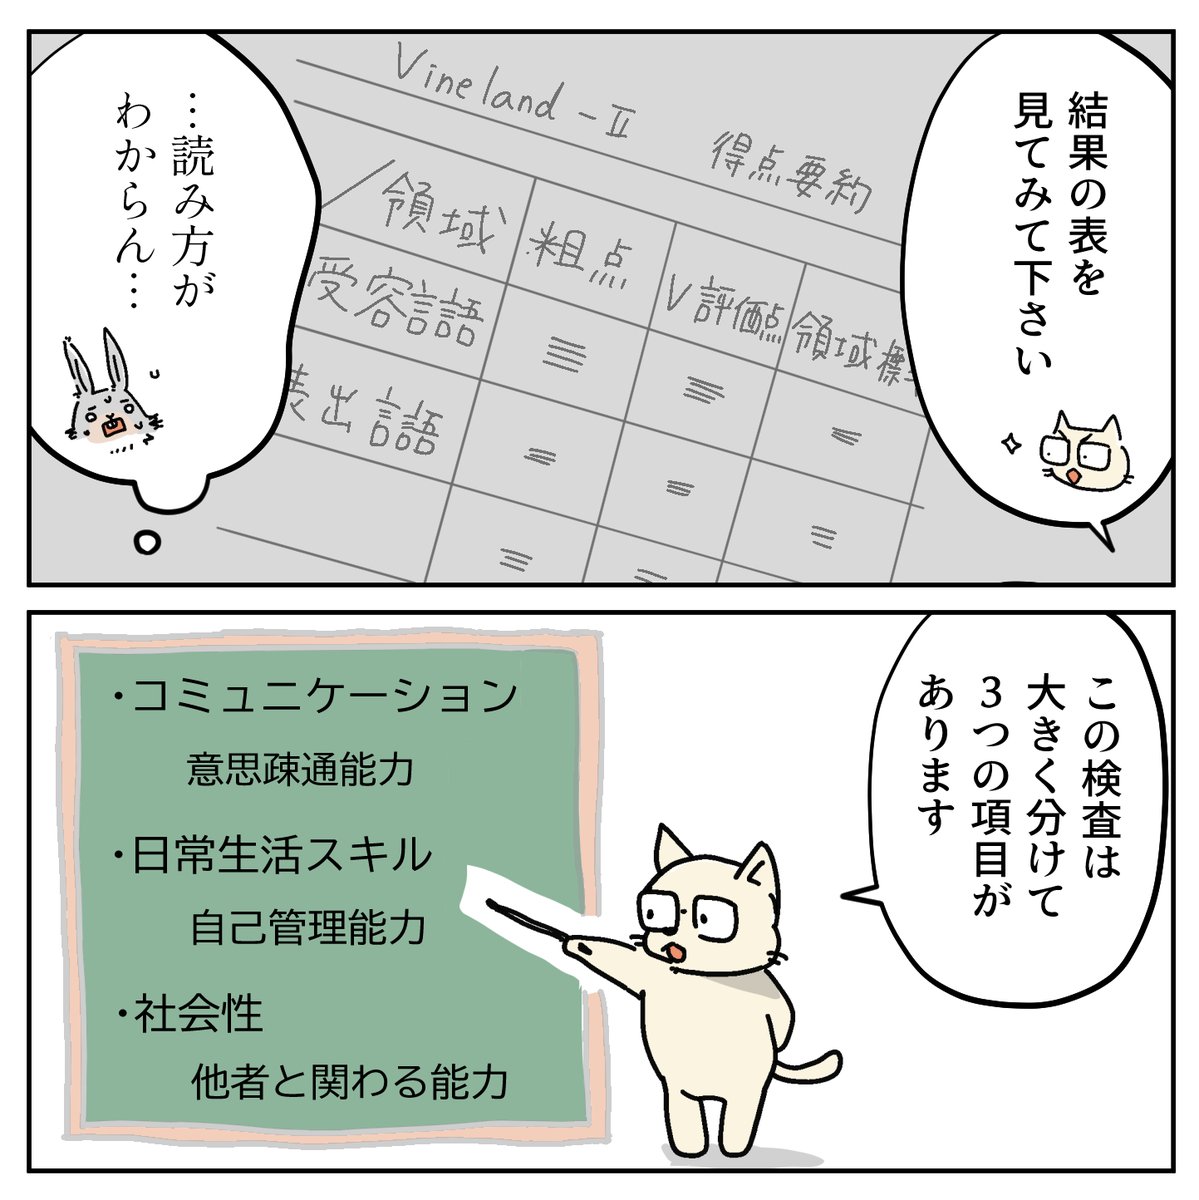 結果の表を
見てみて下さい
Vineland-Ⅱ 得点要約
領域 粗点 V評価点 領域標準
受容語
表出語
…読み方が
わからん…
この検査は
大きく分けて
3つの項目が
あります
・コミュニケーション
意思疎通能力
・日常生活スキル
自己管理能力
・社会性
他者と関わる能力